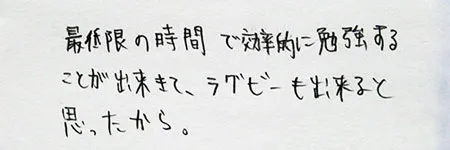 最低限の時間で効率的に勉強する
ことが出来きて、ラグビーも出来ると
思ったから。